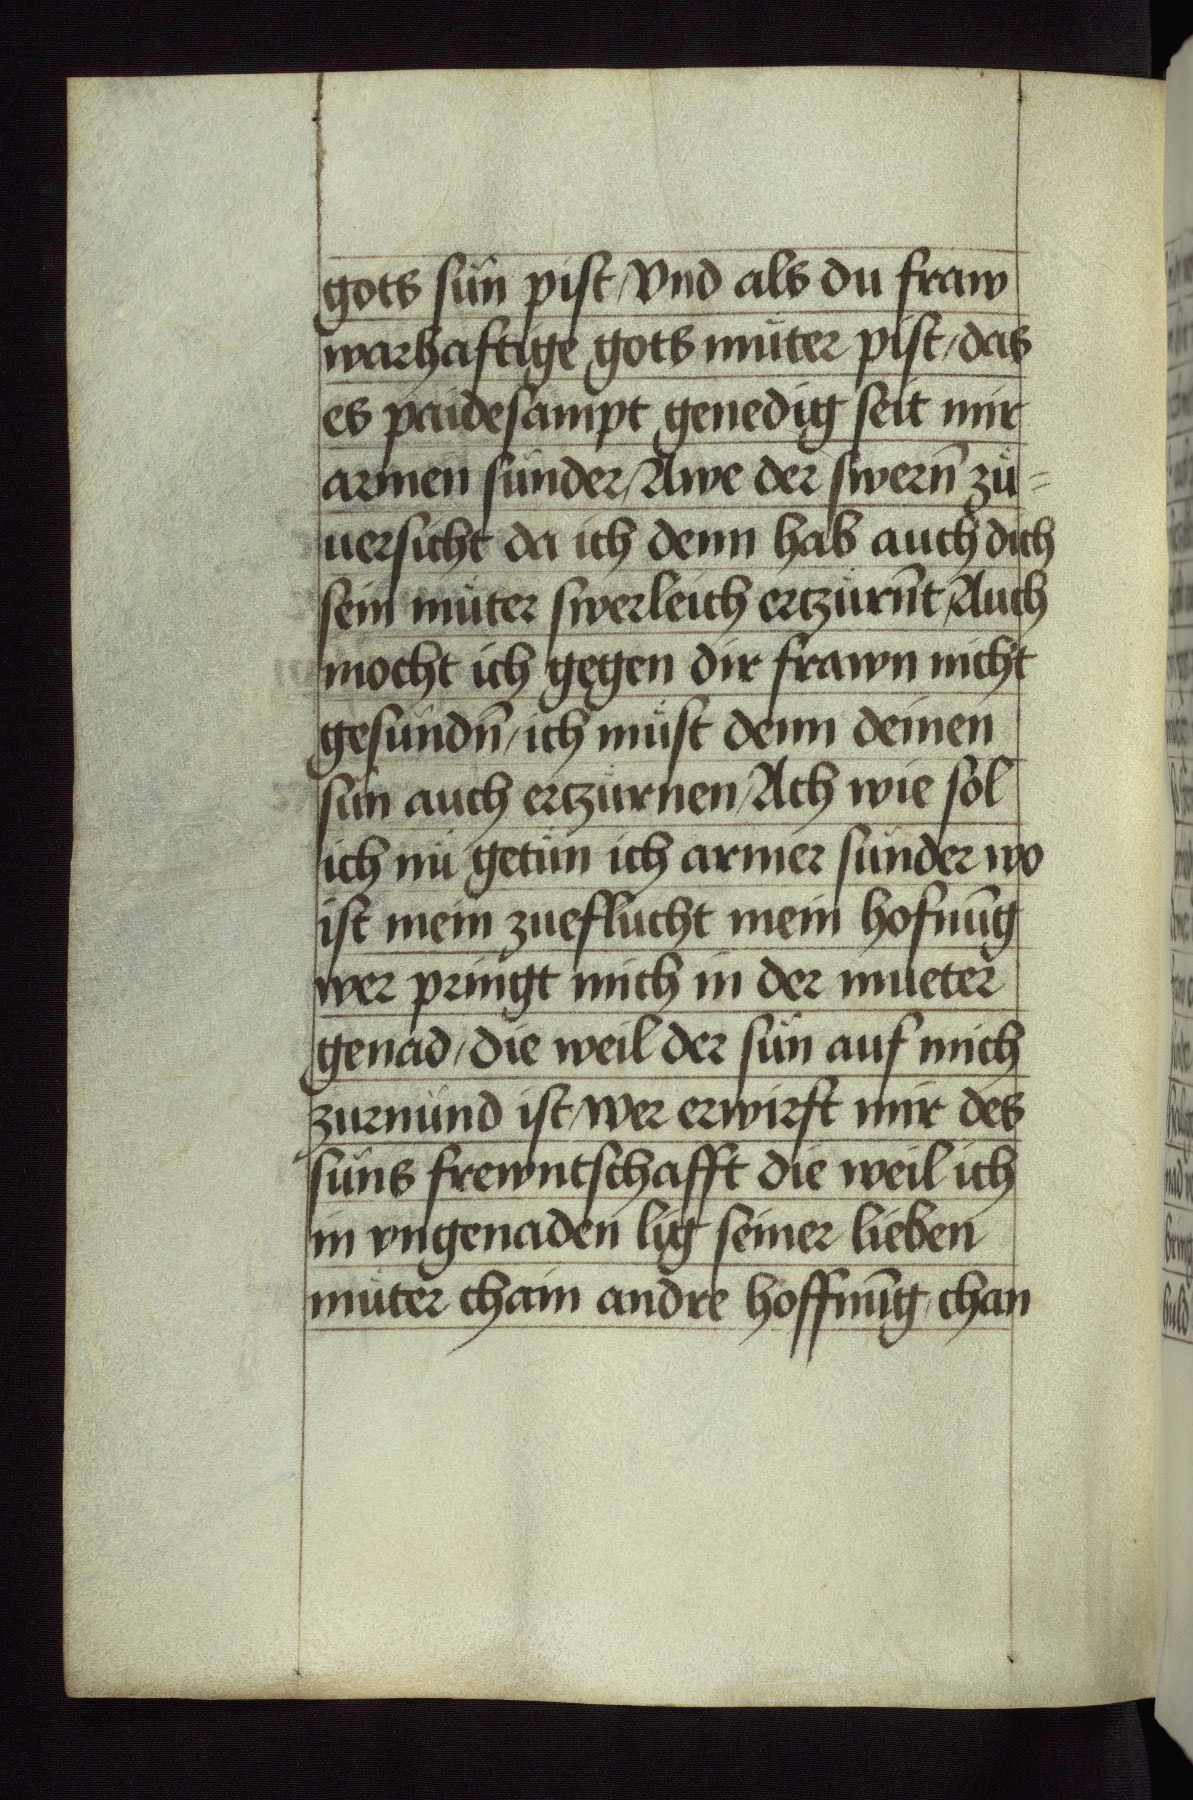 gots sün pist / Vnd als du fraw
warhaftige gots müter pist / das
es paidesampt genedig seit mir
armen sünder / Awe der swern̄ zü=
uersicht da ich denn hab auch dich
sein müter swerleich ertzürn̄t / Auch
mocht ich gegen dir frawn nicht
gesündn̄ / ich müst denn deinen
sün auch ertzürnen / Ach wie sol
ich nü getün ich armer sünder wo
ist mein zueflucht mein hofnūg
wer pringt mich in der mueter
genad / die weil der sün auf mich
zurnund ist / wer erwirft mir des
süns frewntschafft die weil ich
in vngenaden lig seiner lieben
müter chain andre hoffnūg / chan